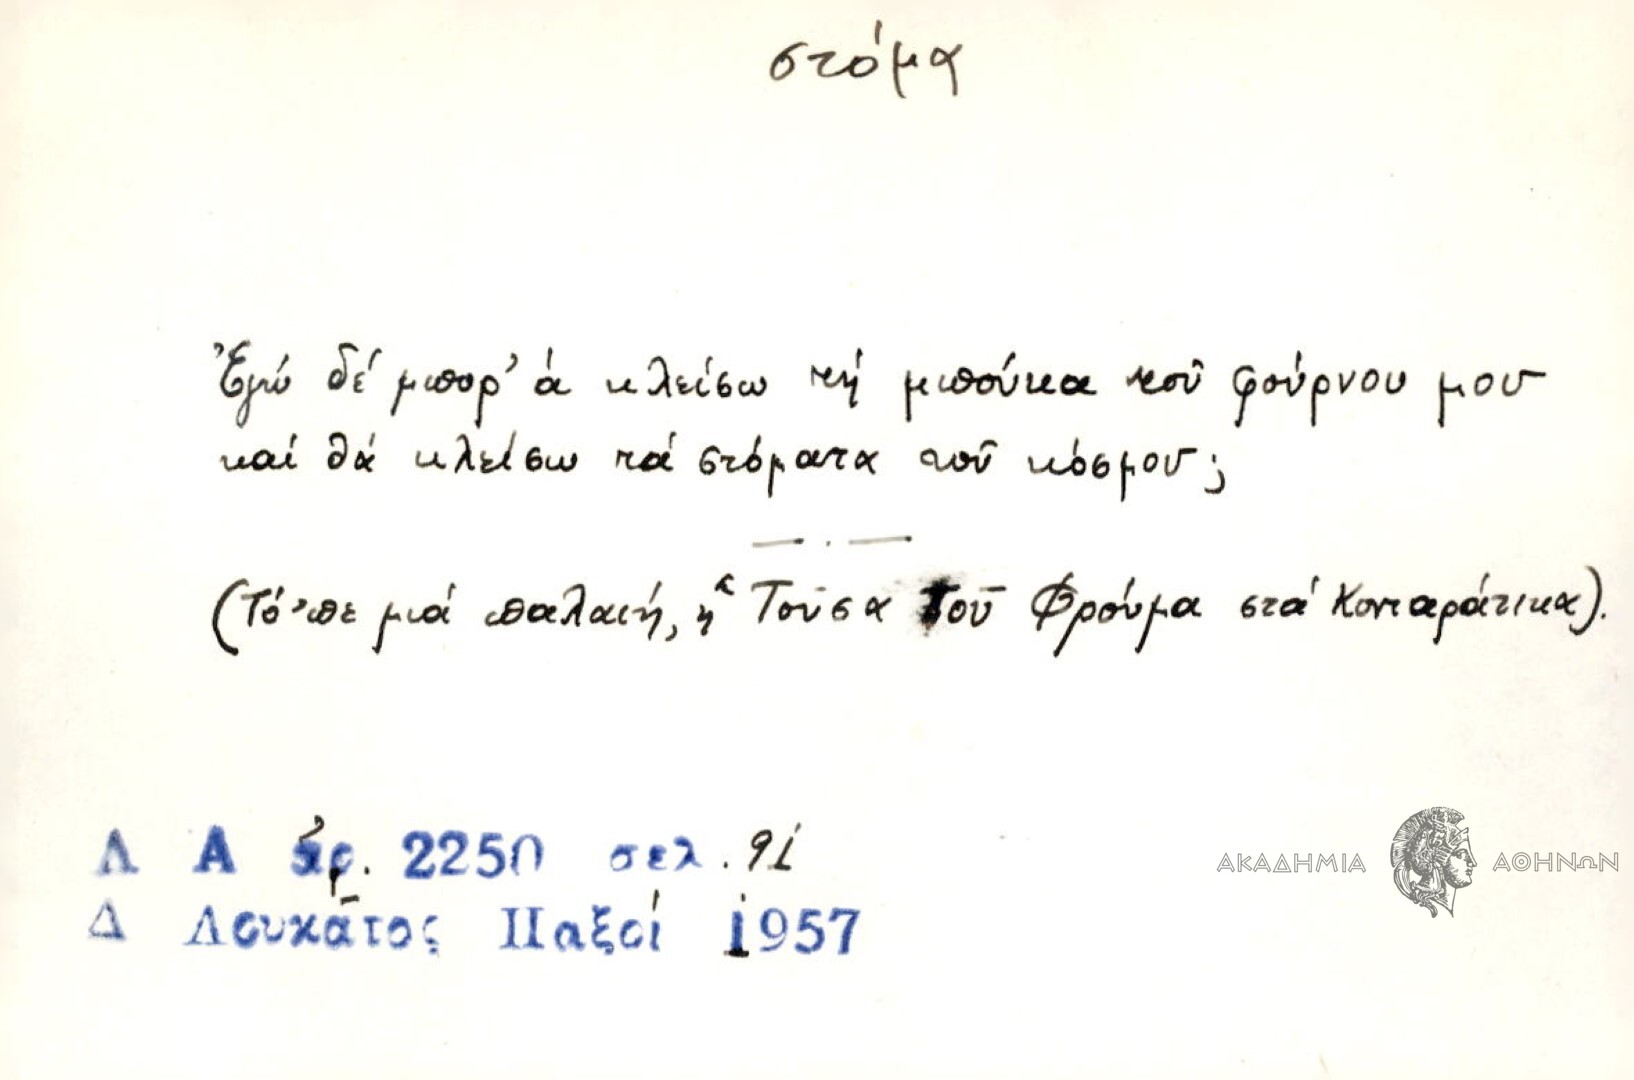 στόμα
Ἐγώ δέ μπορ' ά κλείσω τή μπούκα τοῦ φούρνου μου
καί θά κλείσω τά στόματα τοῦ κόσμου;
(Τό 'πε μιά παλαιή, ἡ Τούσα τοῦ Φρούμα στά Κονταράτικα).
Λ Α ἀρ. 2250 σελ. 91
Δ Λουκᾶτος Παξοί 1957
ΑΚΑΔΗΜΙΑ ΑΘΗΝΩΝ